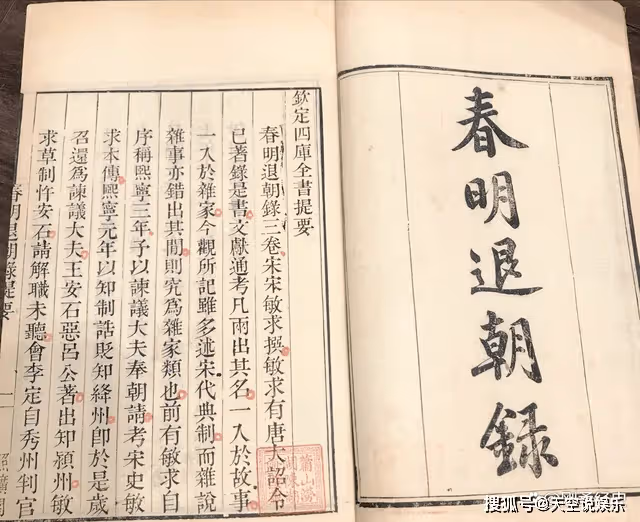 春明退朝錄
欽定四庫全書提要
春明退朝錄三卷宋宋敏求撰敏求有唐大詔令
已著錄是書文獻通考凡兩出其名一入於故事
一入於雜家今觀所記雖多述宋代典制而雜說
雜事亦錯出其間則究為雜家類也前有敏求自
序稱熙寧三年予以諫議大夫奉朝請考宋史敏
求本傳熙寧元年以知制誥貶知絳州卽於是歲
召還為諫議大夫王安石惡呂公著出知潁州敏
求草制忤安石請解職未聽會李定自秀州判官
春明退朝錄提要
一
照曠閣
搜狐号@天空说娱乐